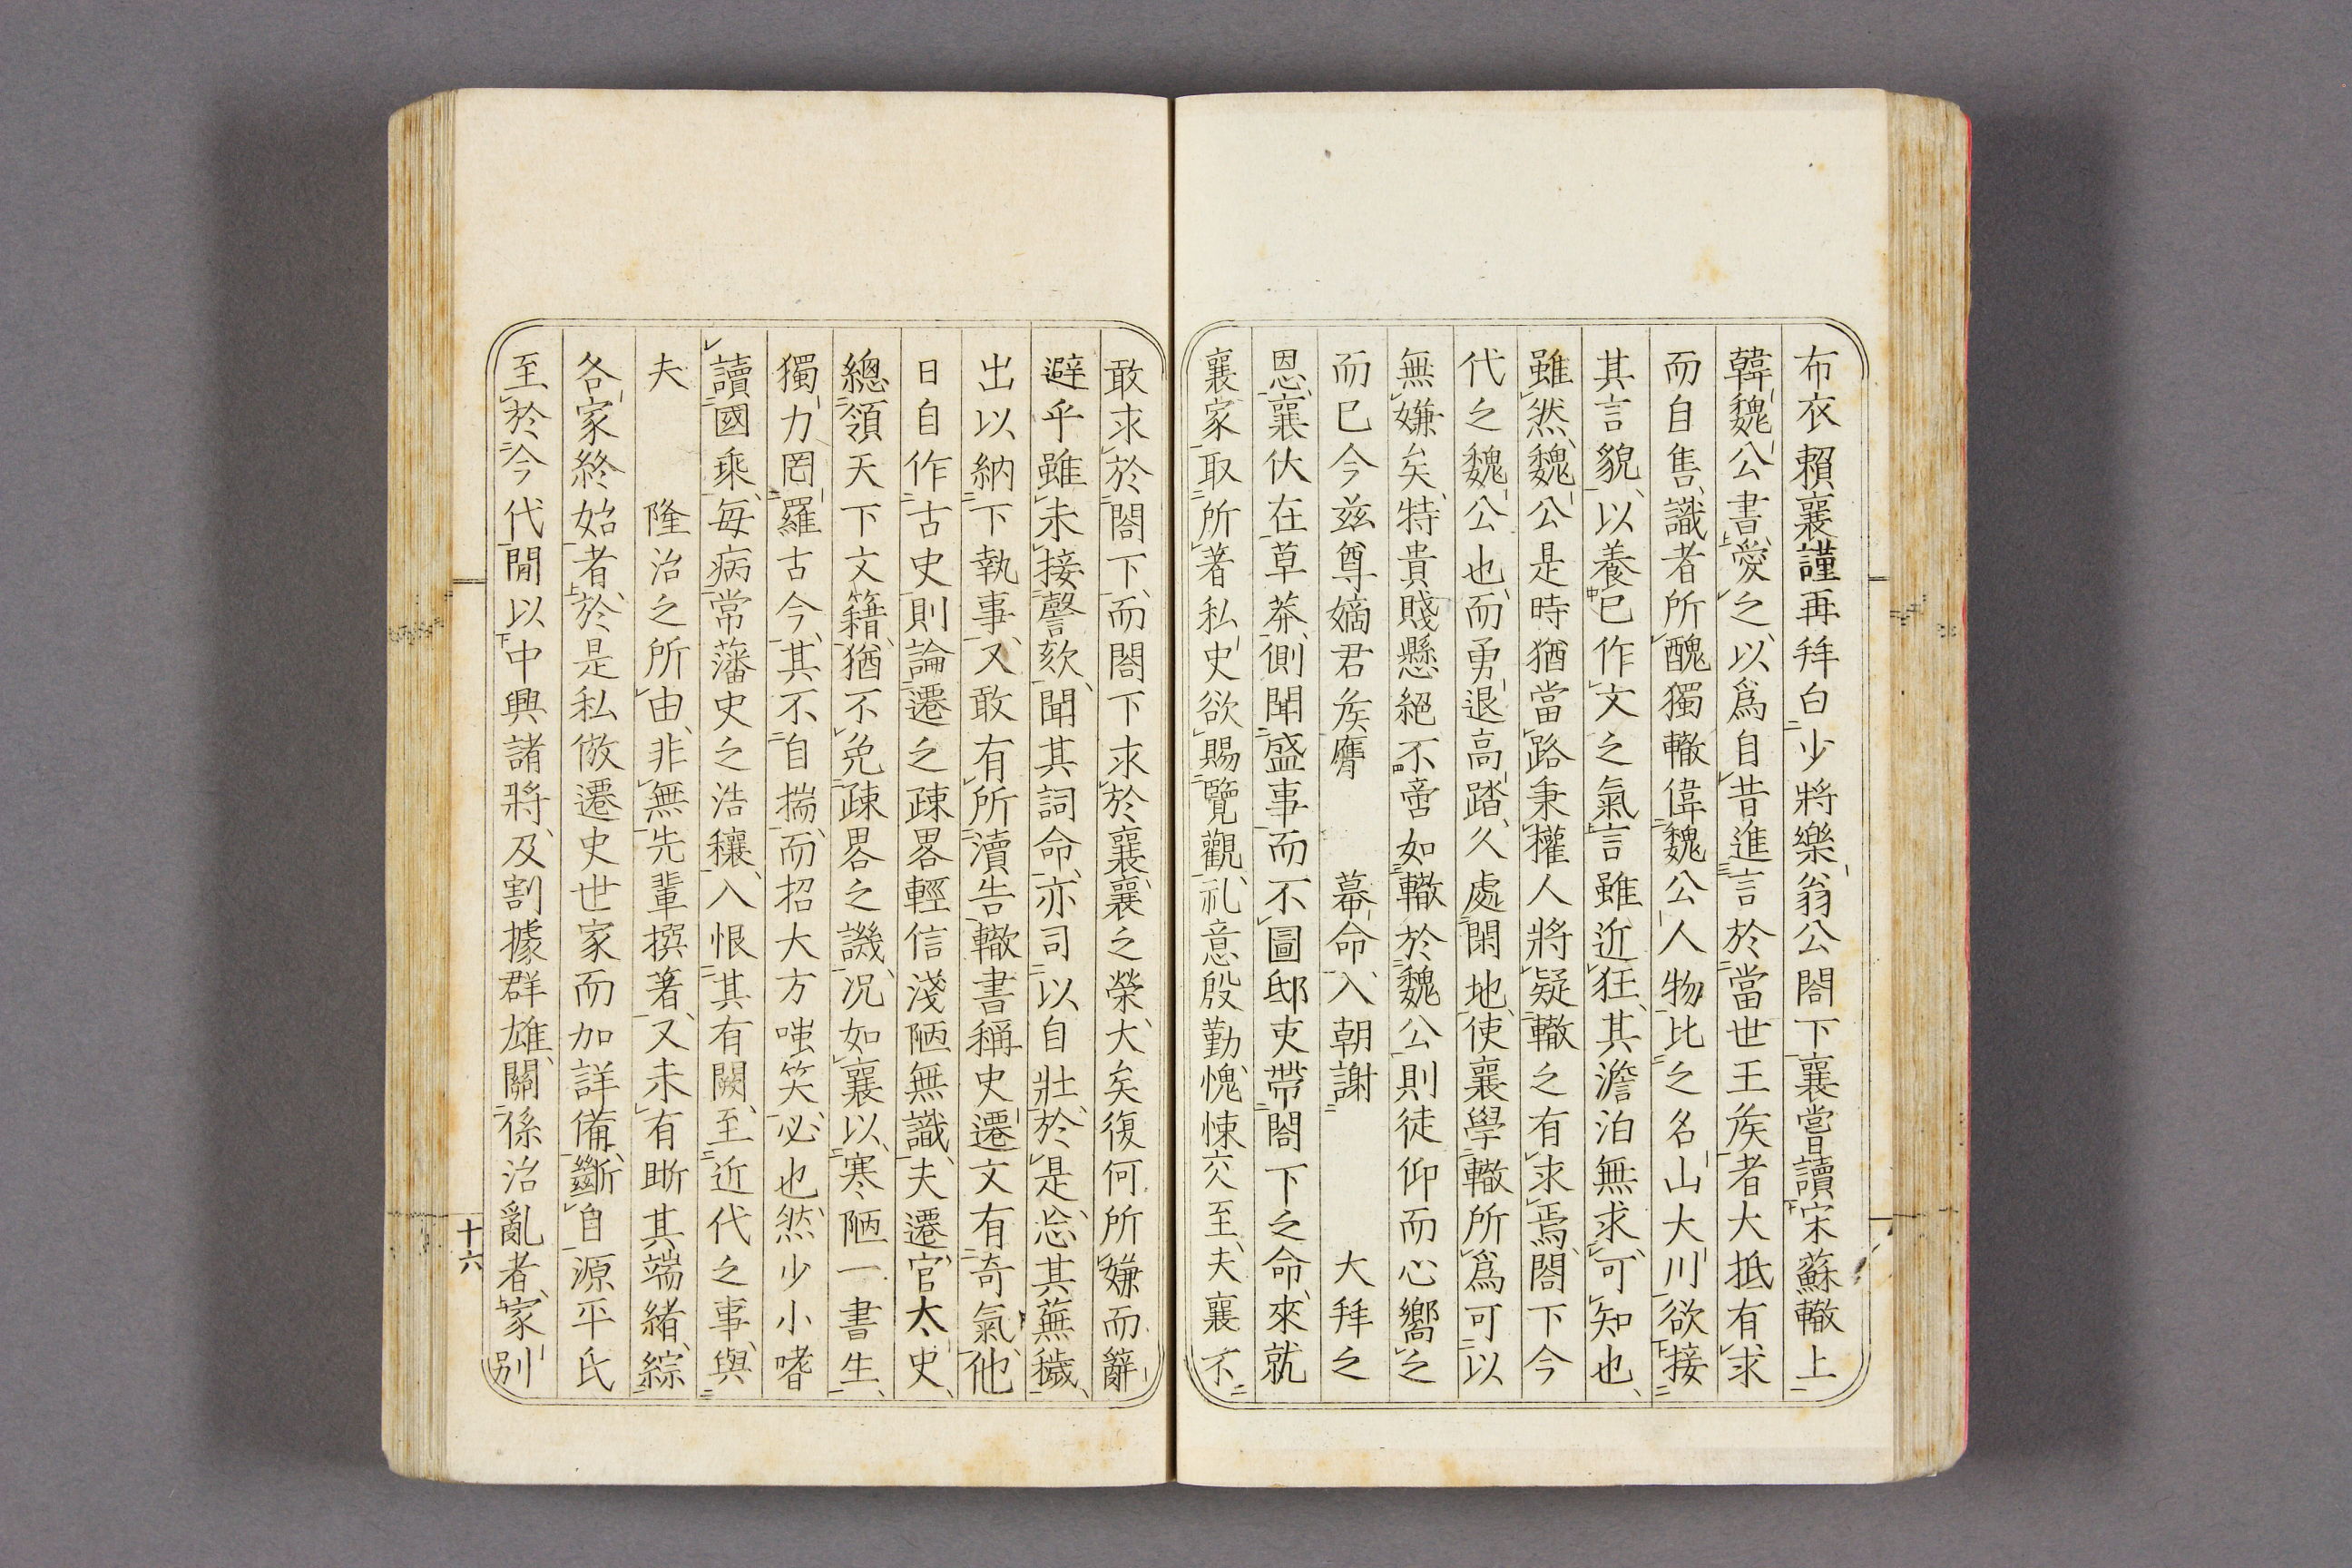 布衣賴襄謹再拜白少將樂翁公閤下襄嘗讀宋蘇轍上
韓魏公書愛之以爲自昔進言於當世王矦者大抵有求
而自售識者所醜獨轍偉魏公人物比之名山大川欲接
其言貌以養已作文之氣言雖近狂其澹泊無求可知也
雖然魏公是時猶當路秉權人將疑轍之有求焉閤下今
代之魏公也而勇退高踏久處閑地使襄學轍所爲可以
無嫌矣特貴賤懸絕不啻如轍於魏公則徒仰而心嚮之
而已今茲尊嫡君矦膺 幕命入朝謝 大拜之
恩襄伏在草莽側聞盛事而不圖邸吏帶閤下之命來就
襄家取所著私史欲賜覽觀礼意殷勤愧悚交至夫襄不
敢求於閤下而閤下求於襄襄之榮大矣復何所嫌而辭
避乎雖未接謦欬聞其詞命亦司以自壯於是忘其蕪穢
出以納下執事又敢有所瀆告轍書稱史遷文有奇氣他
日自作古史則論遷之疎畧輕信淺陋無識夫遷官太史
總領天下文籍猶不免疎畧之譏况如襄以寒陋一書生
獨力罔羅古今其不自揣而招大方嗤笑必也然少小嗜
讀國乘每病常藩史之浩穰入恨其有闕至近代之事與
夫 隆治之所由非無先輩撰著又未有晰其端緒綜
各家終始者於是私倣遷史世家而加詳備斷自源平氏
至於今代閒以中興諸將及割據群雄關係治亂者家別
十六